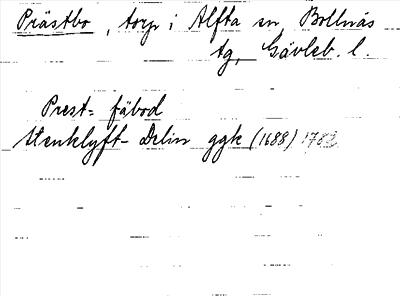 Prästbo, torp i Alfta sn Bollnäs
tg, Gävleb. l.
Prest= fäbod
Stenklyft- Delin ggk (1688) 1782